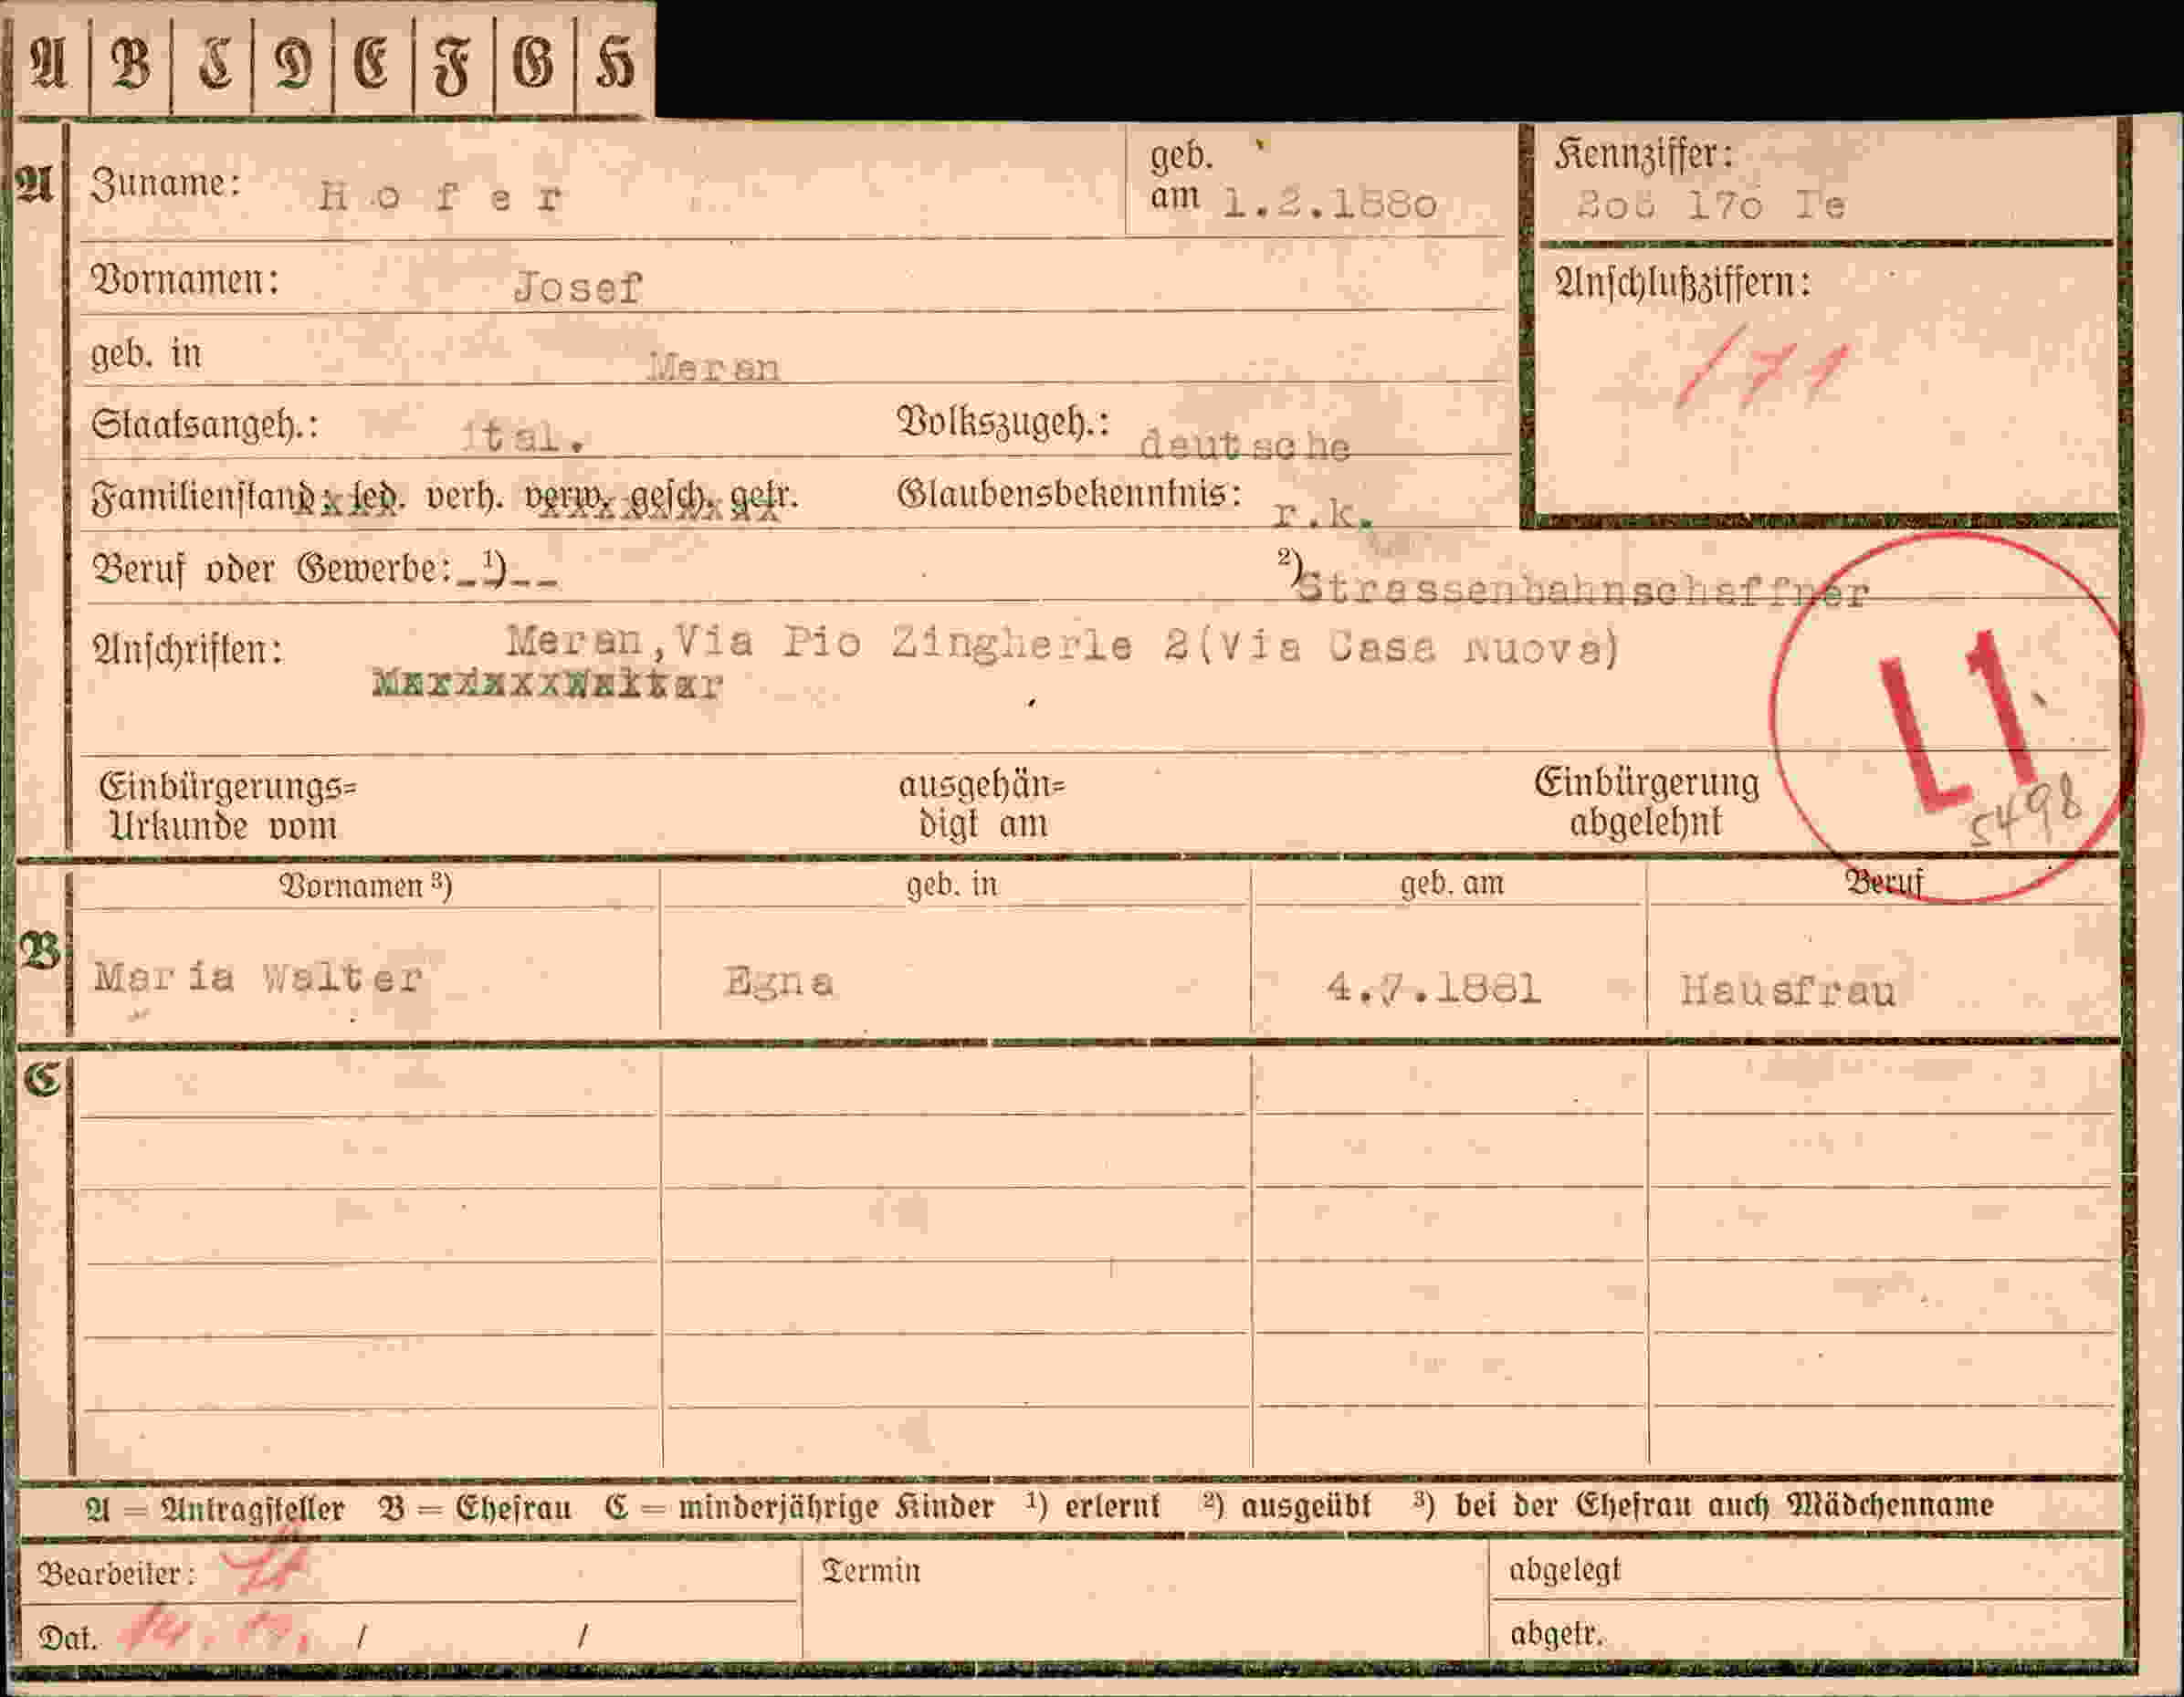 A B C D E F G H
A Zuname: Hofer geb. am 1.2.1880 Kennziffer:
Vornamen: Josef Anschlußziffern:
171
geb. in Meran
Staatsangeh.: ital. Volkszugeh.: deutsche
Familienstand: led. verh. verw. gesch. getr. Glaubensbekenntnis: r.k.
Beruf oder Gewerbe: 1) -- 2) Strassenbahnschaffner
Anschriften: Meran, Via Pio Zingherle 2(Via Casa Nuova)
L1
5498
Einbürgerungs=
Urkunde vom
ausgehän=
digt am
Einbürgerung
abgelehnt
Vornamen 3) geb. in geb. am Beruf
B Maria Walter Egna 4.7.1881 Hausfrau
C
A = Antragsteller B = Ehefrau C = minderjährige Kinder 1) erlernt 2) ausgeübt 3) bei der Ehefrau auch Mädchenname
Bearbeiter: Termin abgelegt
Dat. / / abgetr.